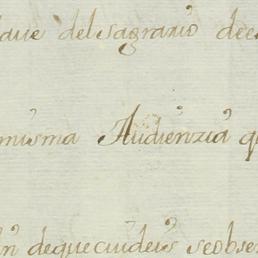 que del sagrario de
misma Audiencia q
n de que cuideis se obse